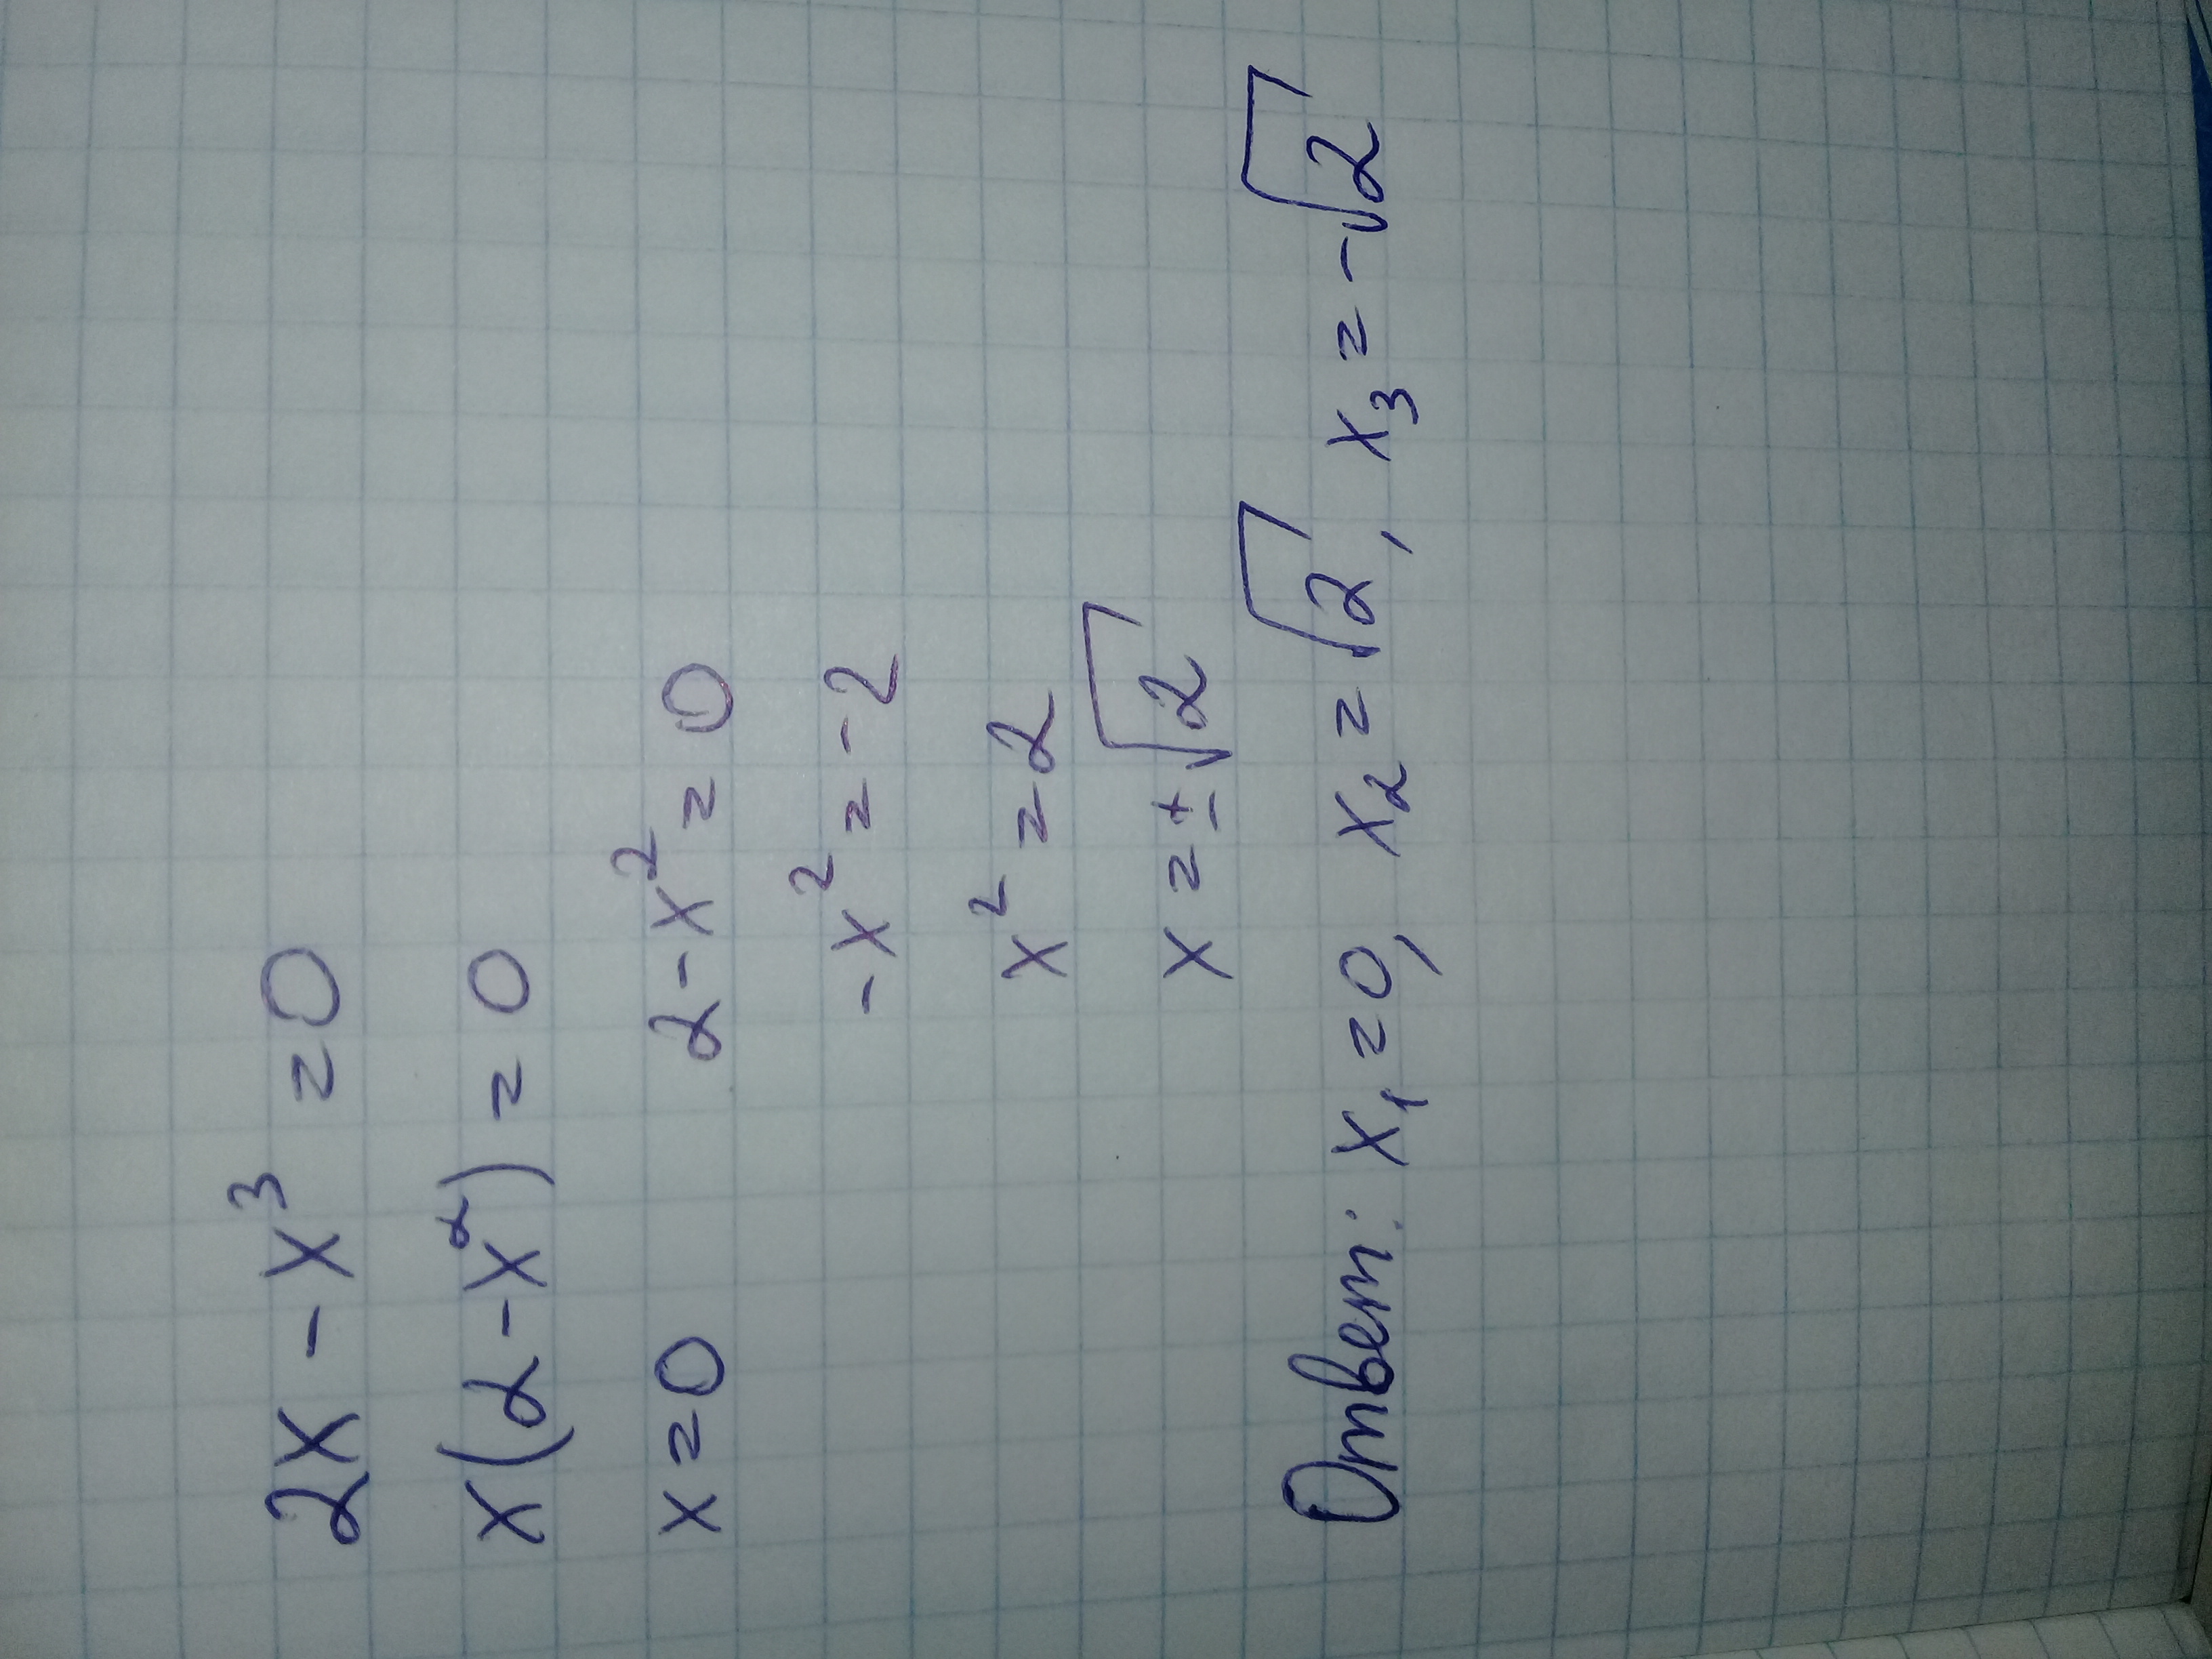 2x - x³ = 0
x(2 - x²) = 0
x = 0 2 - x² = 0
-x² = -2
x² = 2
x = ±√2
Ответ: x₁ = 0, x₂ = √2, x₃ = -√2